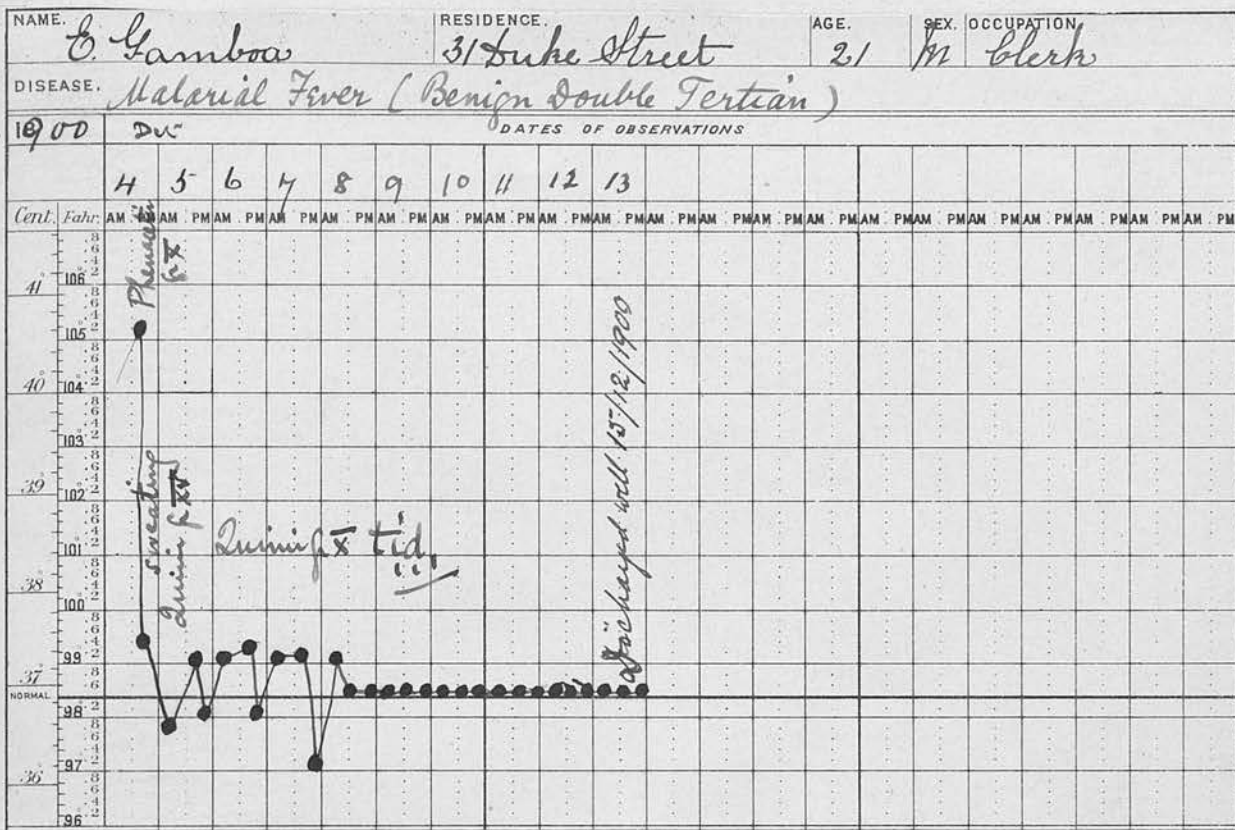 NAME. E. Gamboa RESIDENCE. 31 Duke Street AGE. 21 SEX. M OCCUPATION Clerk
DISEASE. Malarial Fever (Benign Double Tertian)
1900 Dec DATES OF OBSERVATIONS
4 5 6 7 8 9 10 11 12 13
Cent. Fahr. AM PM AM PM AM PM AM PM AM PM AM PM AM PM AM PM AM PM AM PM AM PM AM PM AM PM AM PM AM PM AM PM AM PM AM PM AM PM AM PM AM PM
41° 106°
105°
40° 104°
103°
39° 102°
101°
38° 100°
99°
37°
NORMAL 98°
97°
36° 96°
gr X
Sweating
Quinin gr XV
Quinin gr X t.i.d.
Discharged well 15/12/1900